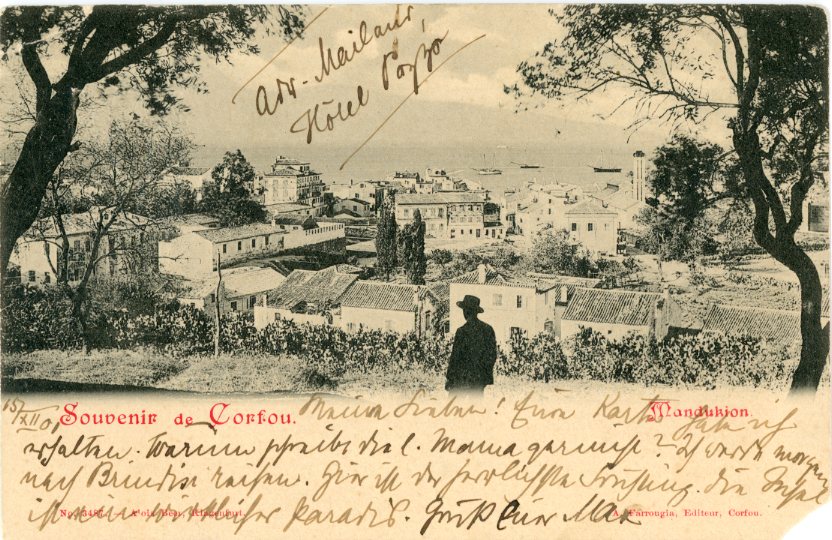 Adr. Mailand,
Hôtel Pozzo
15/XII 01
Souvenir de Corfou.
Mandukion.
Meine Lieben! Eure Karte habe ich
erhalten. Warum schreibt die l. Mama gar nicht? Ich werde morgen
nach Brindisi reisen. Hier ist der herrlichste Frühling. Die Insel
ist ein wirkliches Paradis. Gruß Euer Max
No. 3487. — Alois Beer, Klagenfurt.
A. Farrougia, Editeur, Corfou.